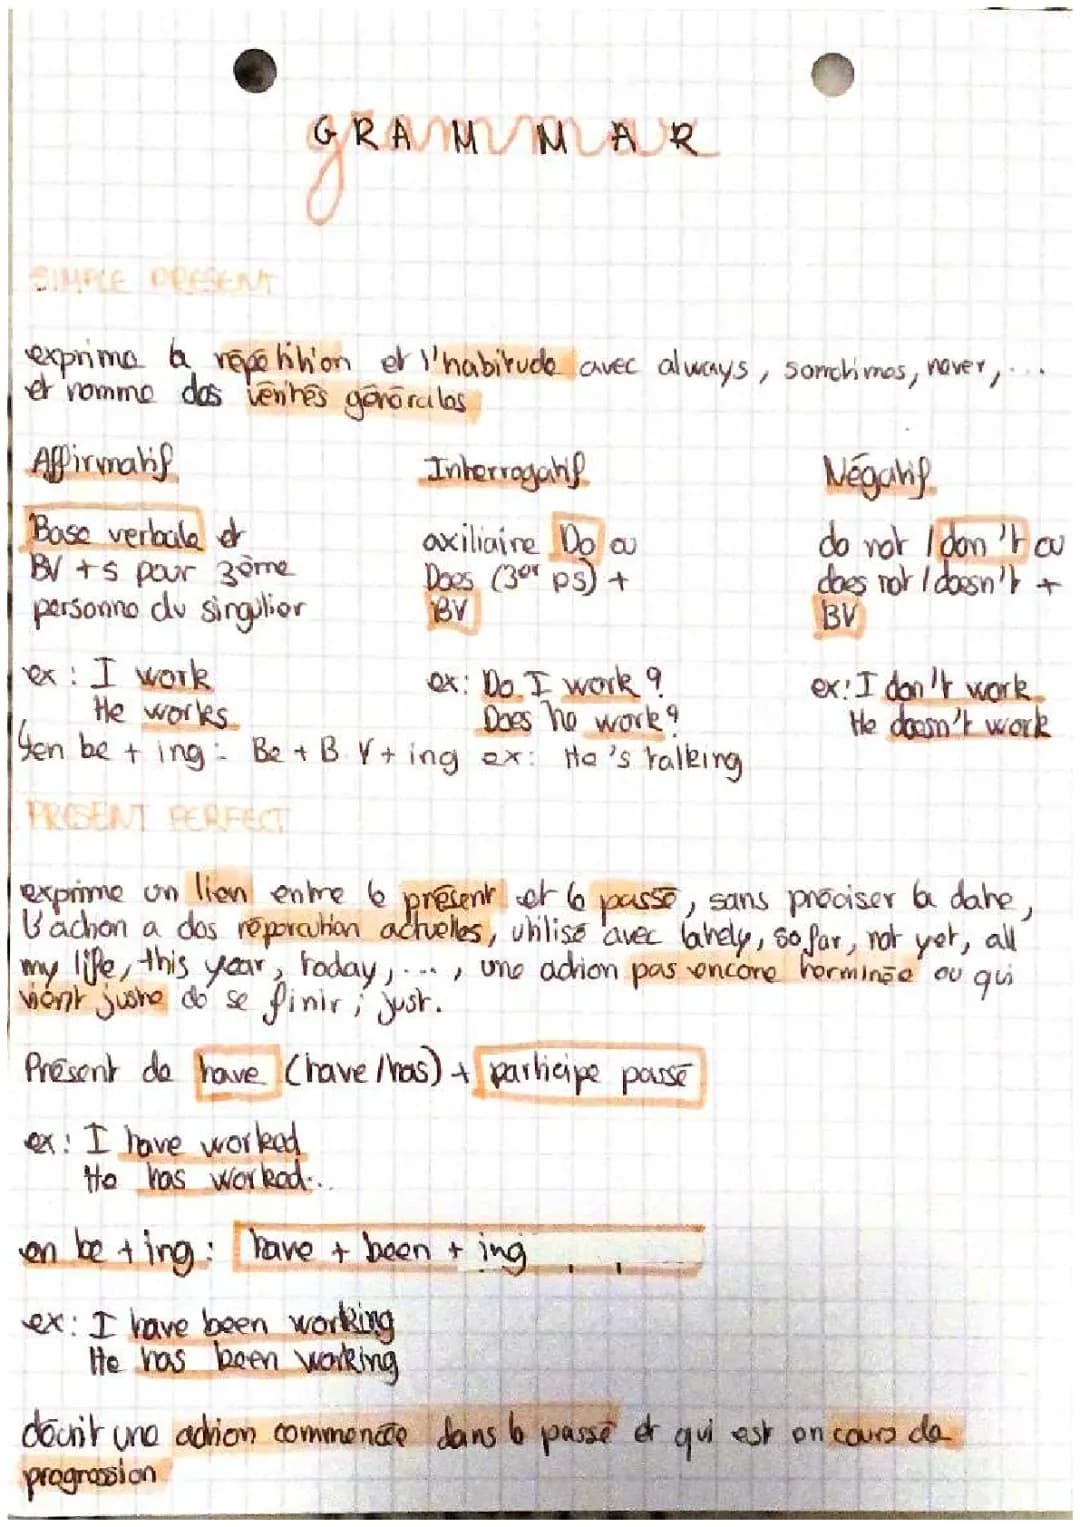 GRAMMAR
SIMPLE PRESENT
exprime la répétition et l'habitude avec always, sometimes, never, ...
et nomme des vérités générales
Affirmatif
Base verbale et
BV +s pour 3ème
personne du singulier
ex : I work
He works
Interrogatif
axiliaire Do ou
Does (3er ps) +
BV
ex: Do I work ?
Does he work ?
Négatif
do not / don't ou
does not / doesn't +
BV
ex: I don't work
He doesn't work
en be + ing : Be + B.V + ing ex: He's talking
PRESENT PERFECT
exprime un lien entre le présent et le passé, sans préciser la date,
l'action a des réparcution actuelles, utilisé avec lately, so far, not yet, all
my life, this year, today, ..., une action pas encore terminée ou qui
vient juste de se finir ; just.
Présent de have (have / has) + participe passé
ex : I have worked
He has worked...
en be + ing : have + been + ing
ex : I have been working
He has been working
décrit une action commencée dans le passé et qui est en cours de
progression